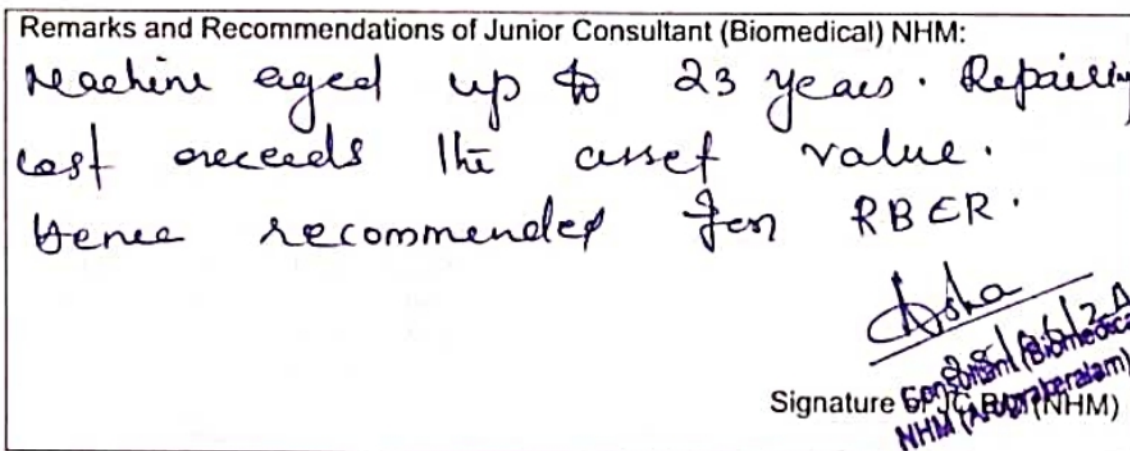 Remarks and Recommendations of Junior Consultant (Biomedical) NHM:
Machine aged up to 23 years. Repairing
cost exceeds the asset value.
Hence recommended for RBER.
Asha
Consultant (Biomedical
Signature of JC BM (NHM)
NHM